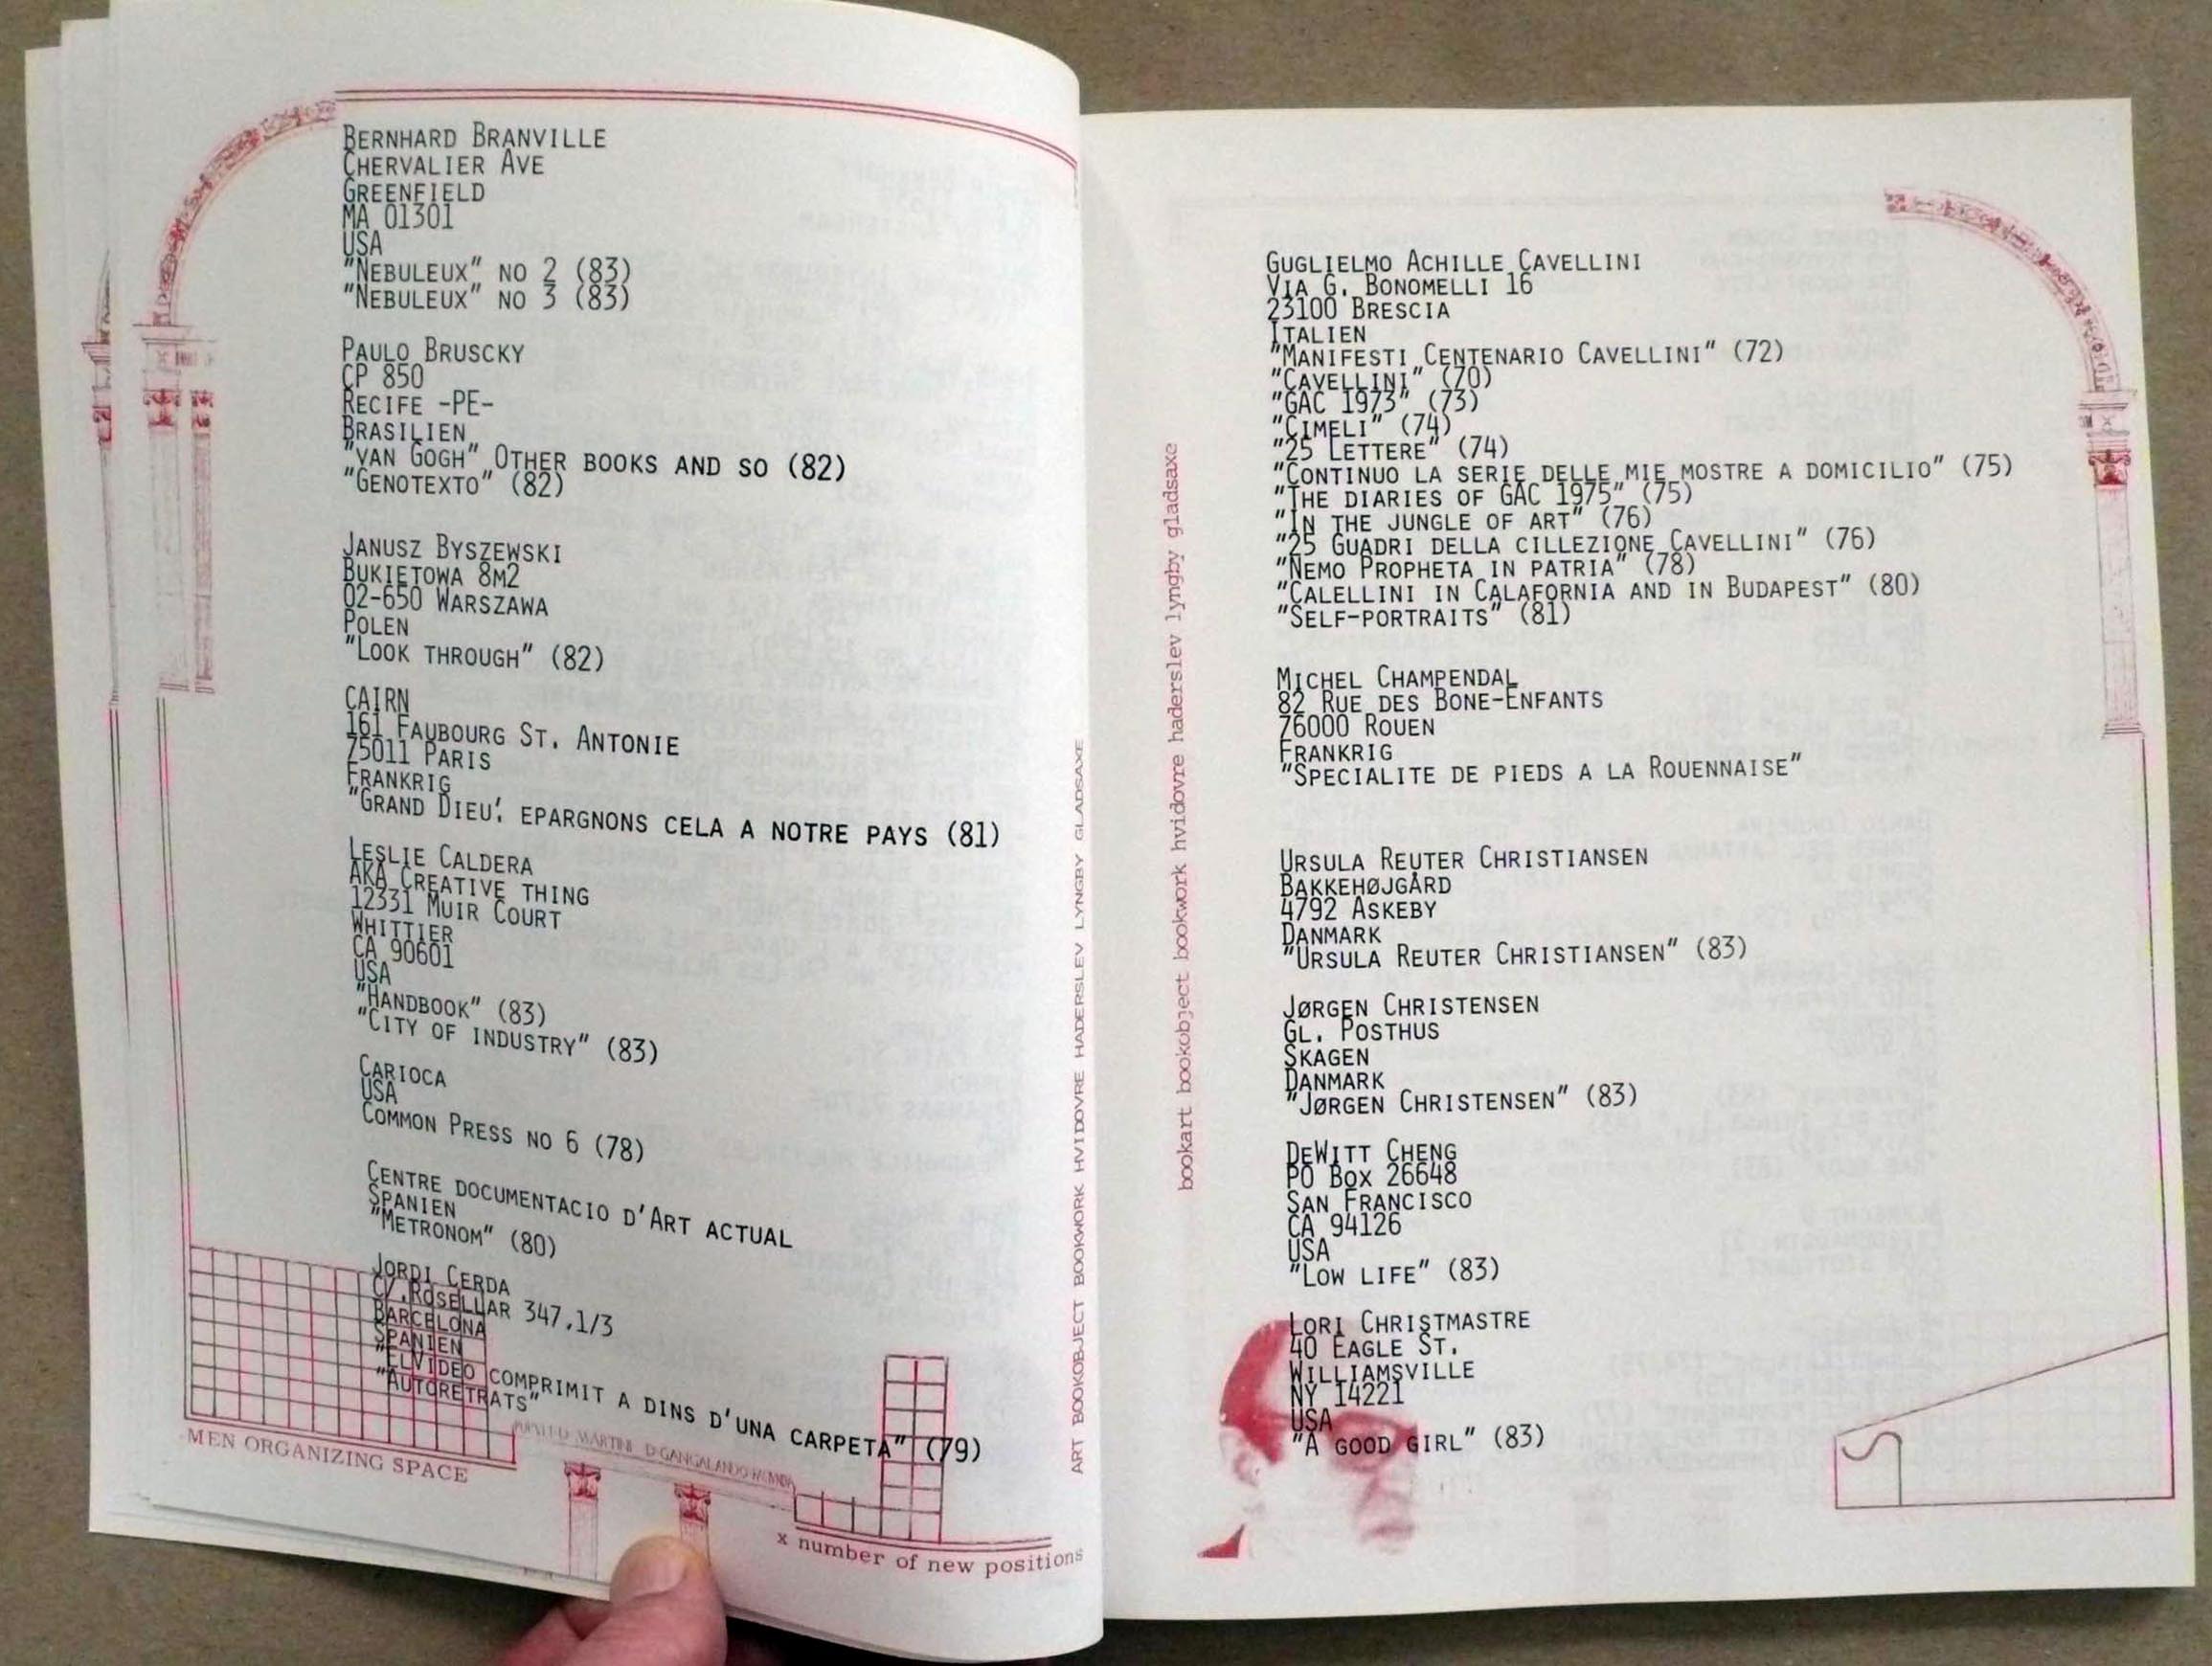 BERNHARD BRANVILLE
CHERVALIER AVE
GREENFIELD
MA 01301
USA
"NEBULEUX" NO 2 (83)
"NEBULEUX" NO 3 (83)
PAULO BRUSCKY
CP 850
RECIFE -PE-
BRASILIEN
"VAN GOGH" OTHER BOOKS AND SO (82)
"GENOTEXTO" (82)
JANUSZ BYSZEWSKI
BUKIETOWA 8M2
02-650 WARSZAWA
POLEN
"LOOK THROUGH" (82)
CAIRN
161 FAUBOURG ST. ANTONIE
75011 PARIS
FRANKRIG
"GRAND DIEU', EPARGNONS CELA A NOTRE PAYS (81)
LESLIE CALDERA
AKA CREATIVE THING
12331 MUIR COURT
WHITTIER
CA 90601
USA
"HANDBOOK" (83)
"CITY OF INDUSTRY" (83)
CARIOCA
USA
COMMON PRESS NO 6 (78)
CENTRE DOCUMENTACIO D'ART ACTUAL
SPANIEN
"METRONOM" (80)
JORDI CERDA
C/.ROSELLAR 347.1/3
BARCELONA
SPANIEN
"ELVIDEO COMPRIMIT A DINS D'UNA CARPETA" (79)
"AUTORETRATS"
MEN ORGANIZING SPACE
x number of new positions
ART BOOKOBJECT BOOKWORK HVIDOVRE HADERSLEV LYNGBY GLADSAXE
bookart bookobject bookwork hvidovre haderslev lyngby gladsaxe
GUGLIELMO ACHILLE CAVELLINI
VIA G. BONOMELLI 16
23100 BRESCIA
ITALIEN
"MANIFESTI CENTENARIO CAVELLINI" (72)
"CAVELLINI" (70)
"GAC 1973" (73)
"CIMELI" (74)
"25 LETTERE" (74)
"CONTINUO LA SERIE DELLE MIE MOSTRE A DOMICILIO" (75)
"THE DIARIES OF GAC 1975" (75)
"IN THE JUNGLE OF ART" (76)
"25 GUADRI DELLA CILLEZIONE CAVELLINI" (76)
"NEMO PROPHETA IN PATRIA" (78)
"CALELLINI IN CALAFORNIA AND IN BUDAPEST" (80)
"SELF-PORTRAITS" (81)
MICHEL CHAMPENDAL
82 RUE DES BONE-ENFANTS
76000 ROUEN
FRANKRIG
"SPECIALITE DE PIEDS A LA ROUENNAISE"
URSULA REUTER CHRISTIANSEN
BAKKEHØJGÅRD
4792 ASKEBY
DANMARK
"URSULA REUTER CHRISTIANSEN" (83)
JØRGEN CHRISTENSEN
GL. POSTHUS
SKAGEN
DANMARK
"JØRGEN CHRISTENSEN" (83)
DEWITT CHENG
PO BOX 26648
SAN FRANCISCO
CA 94126
USA
"LOW LIFE" (83)
LORI CHRISTMASTRE
40 EAGLE ST.
WILLIAMSVILLE
NY 14221
USA
"A GOOD GIRL" (83)